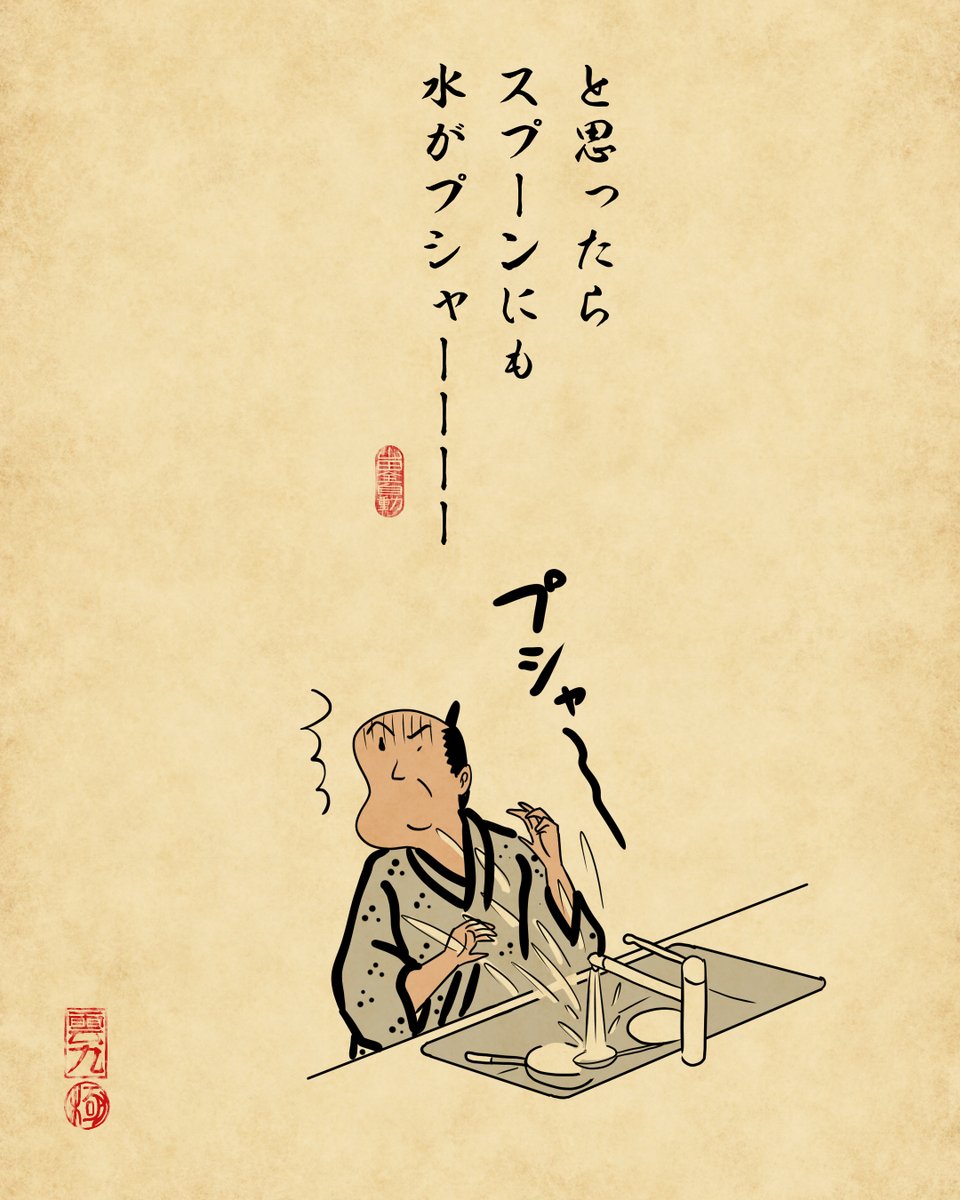 と思ったら
スプーンにも
水がプシャーーーー
プシャ〜
雲九
極